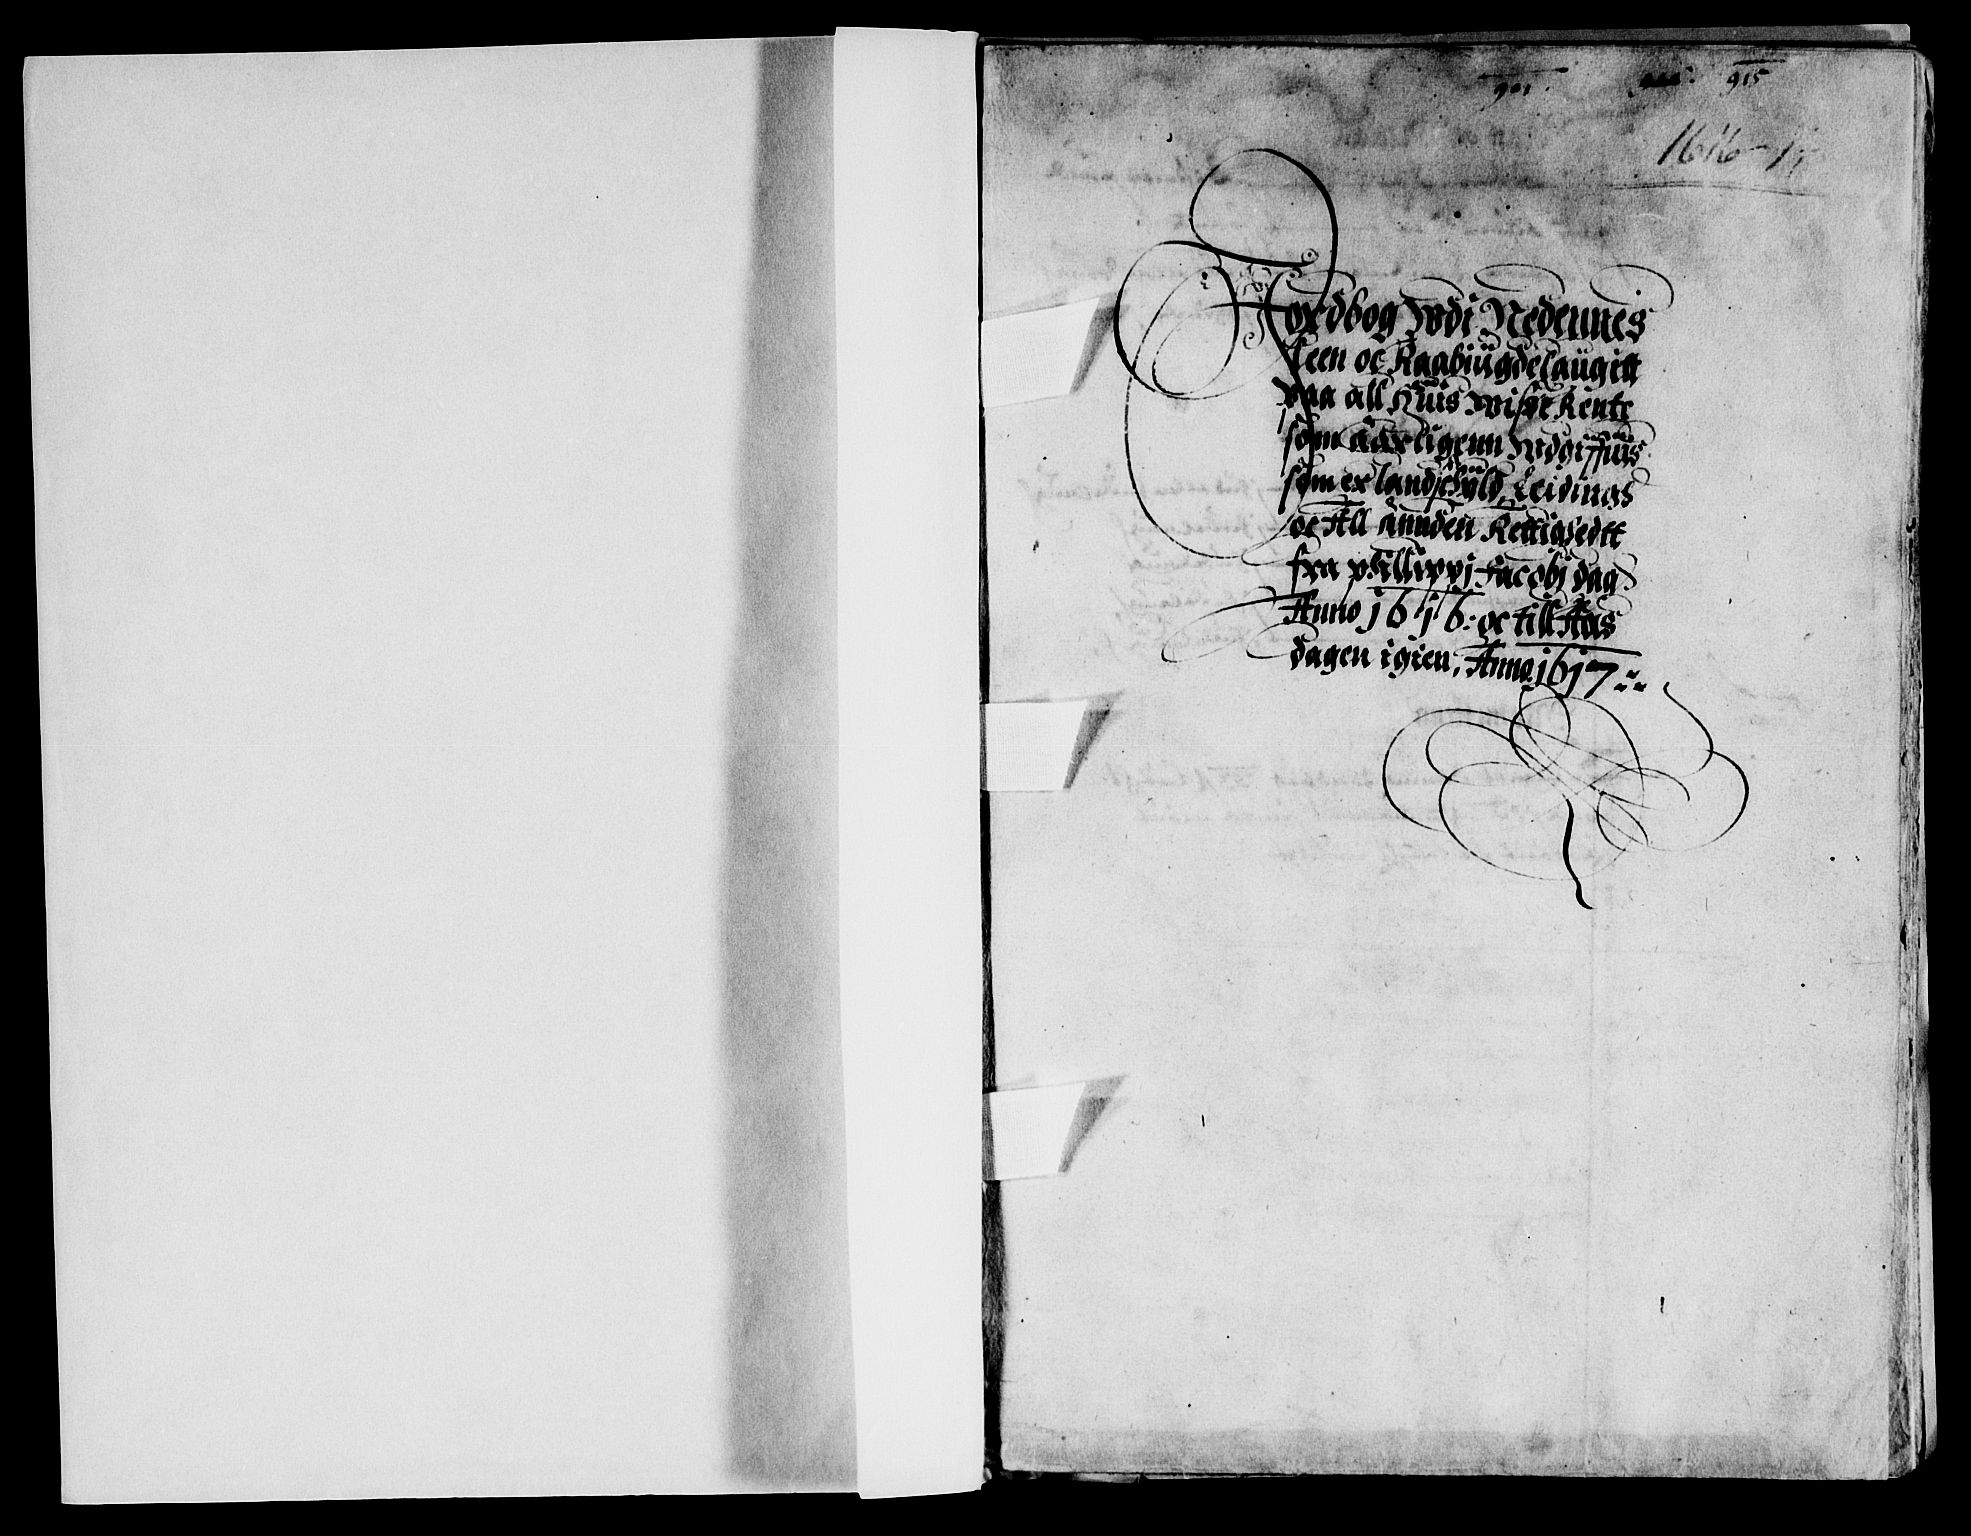 901. 915
1616-17
Jordbog Wdi Nedennes
Leen oc Raabiügdelaügitt
paa all Huis Wisse Rente
som aarligenn Wdgiffuis
som er landschyld, Leidings
oc All annden Rettighedtt
fra Phillippi Jacobj dag
Anno 1616: oc till Aars
dagen igien, Anno 1617